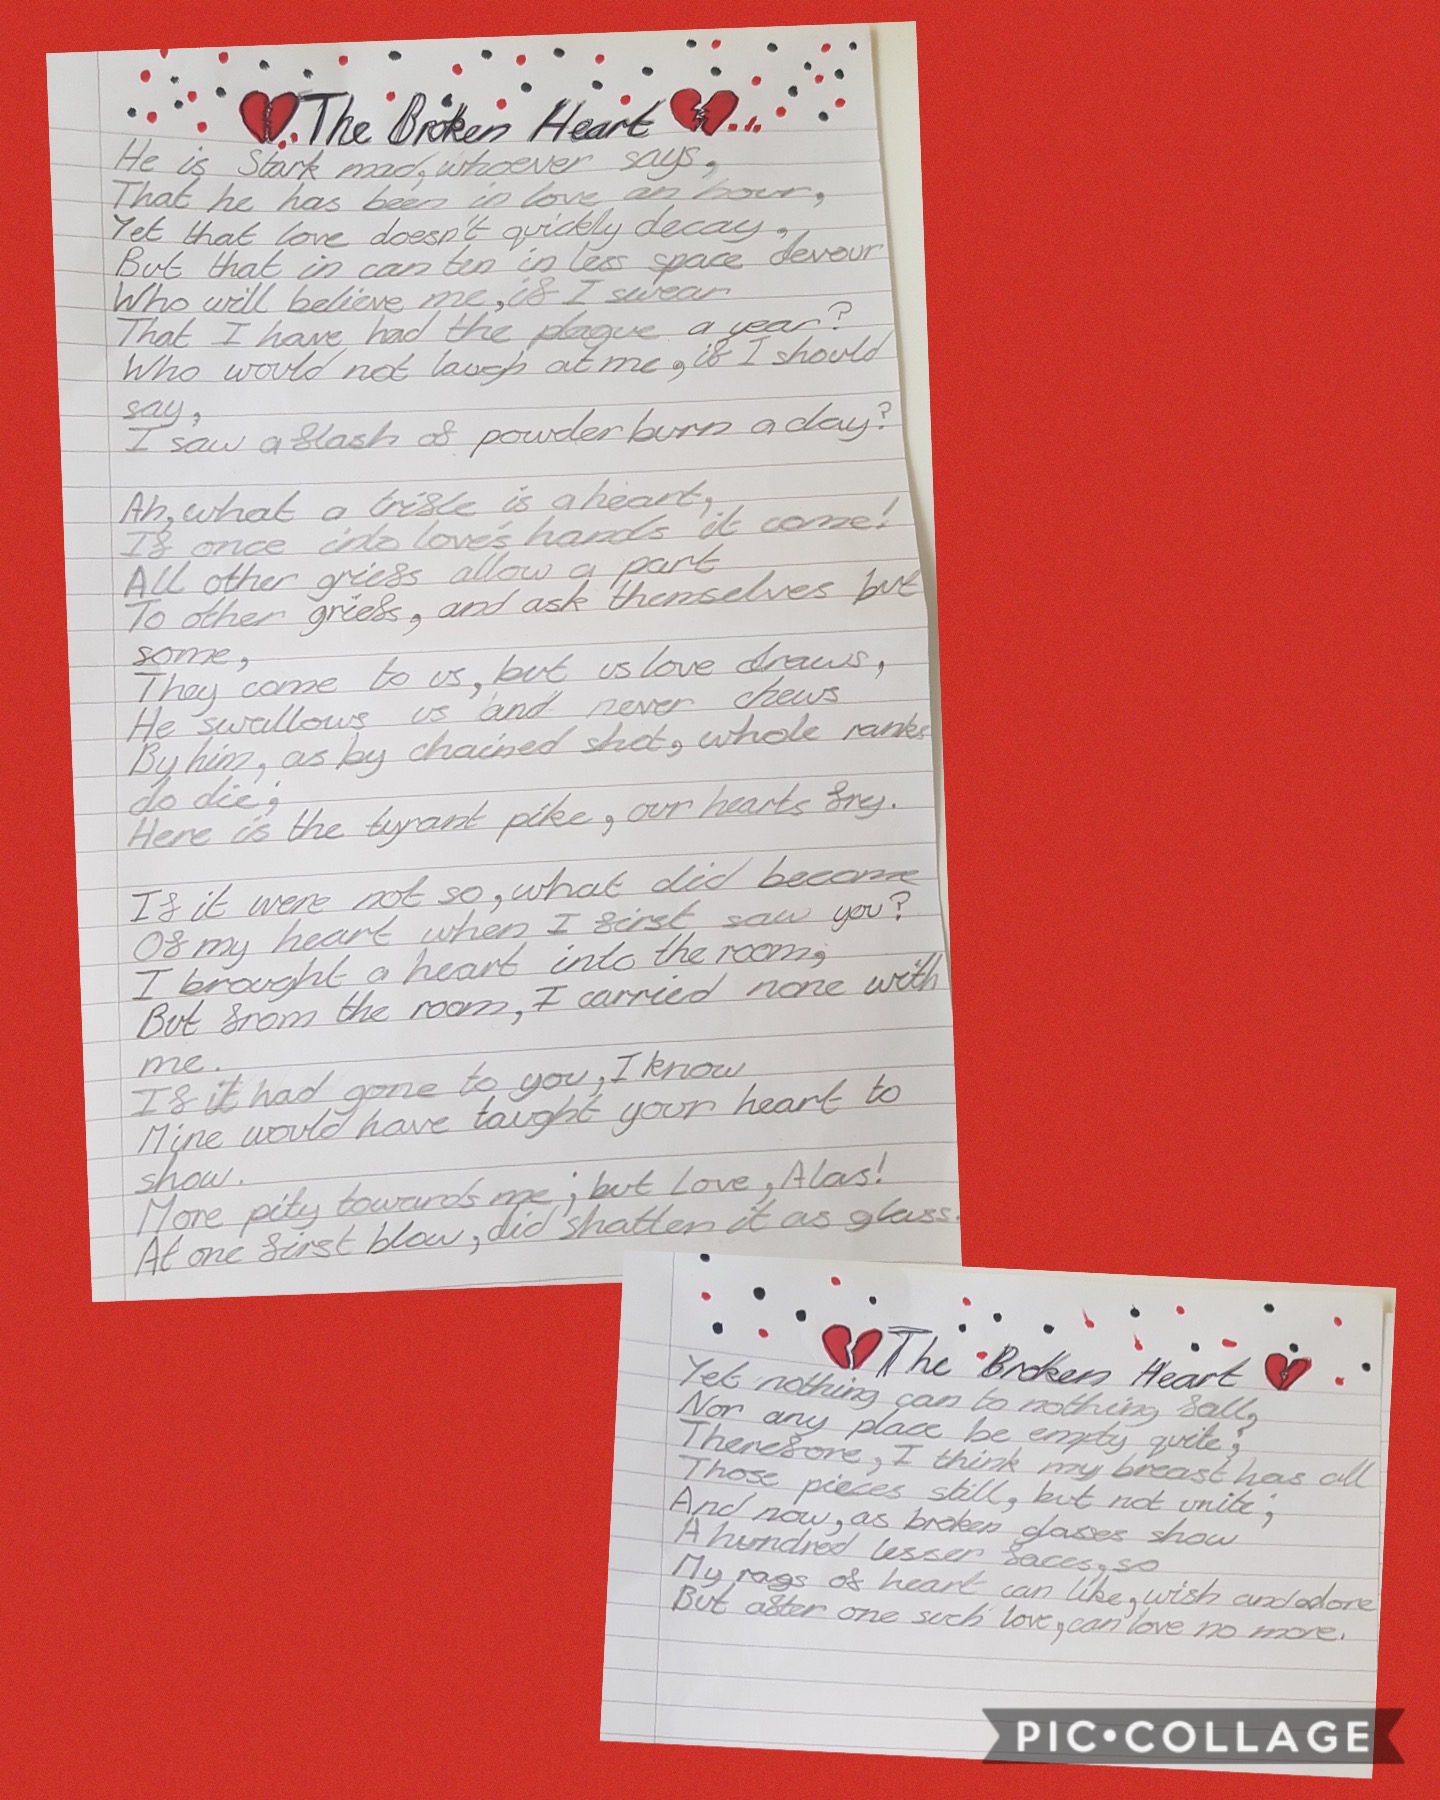 The Broken Heart
He is Stark mad, whoever says,
That he has been in love an hour,
Yet that love doesn't quickly decay,
But that in can ten in less space devour
Who will believe me, if I swear
That I have had the plague a year?
Who would not laugh at me, if I should
say,
I saw a flash of powder burn a day?
Ah, what a trifle is a heart,
If once into love's hands it come!
All other griefs allow a part
To other griefs, and ask themselves but
some,
They come to us, but us love draws,
He swallows us and never chews
By him, as by chained shot, whole ranks
do die;
Here is the tyrant pike, our hearts frey.
If it were not so, what did become
Of my heart when I first saw you?
I brought a heart into the room,
But from the room, I carried none with
me.
If it had gone to you, I know
Mine would have taught your heart to
show.
More pity towards me; but Love, Alas!
At one first blow, did shatten it as glass.
The Broken Heart
Yet nothing can to nothing fall,
Nor any place be empty quite;
Therefore, I think my breast has all
Those pieces still, but not unite;
And now, as broken glasses show
A hundred lesser faces, so
My rags of heart can like, wish and adore
But after one such love, can love no more.
PIC•COLLAGE